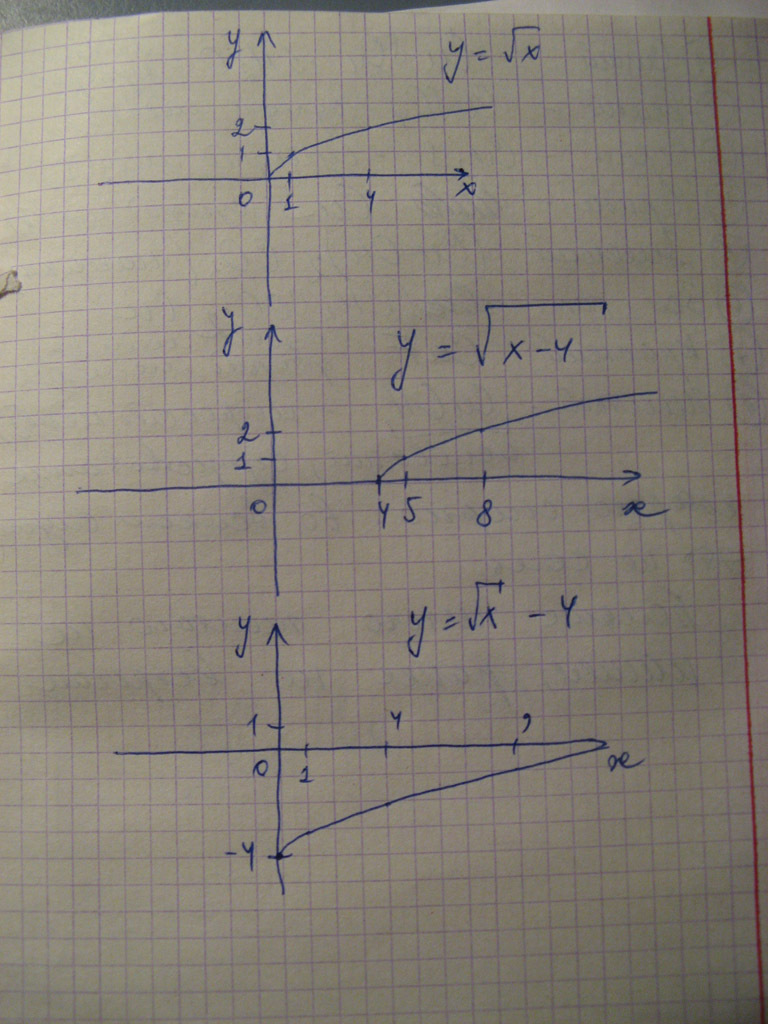 y
y = √x
2
1
0 1 4 x
y
y = √(x-4)
2
1
0 4 5 8 x
y
y = √x - 4
1 4 9
0 1 x
-4